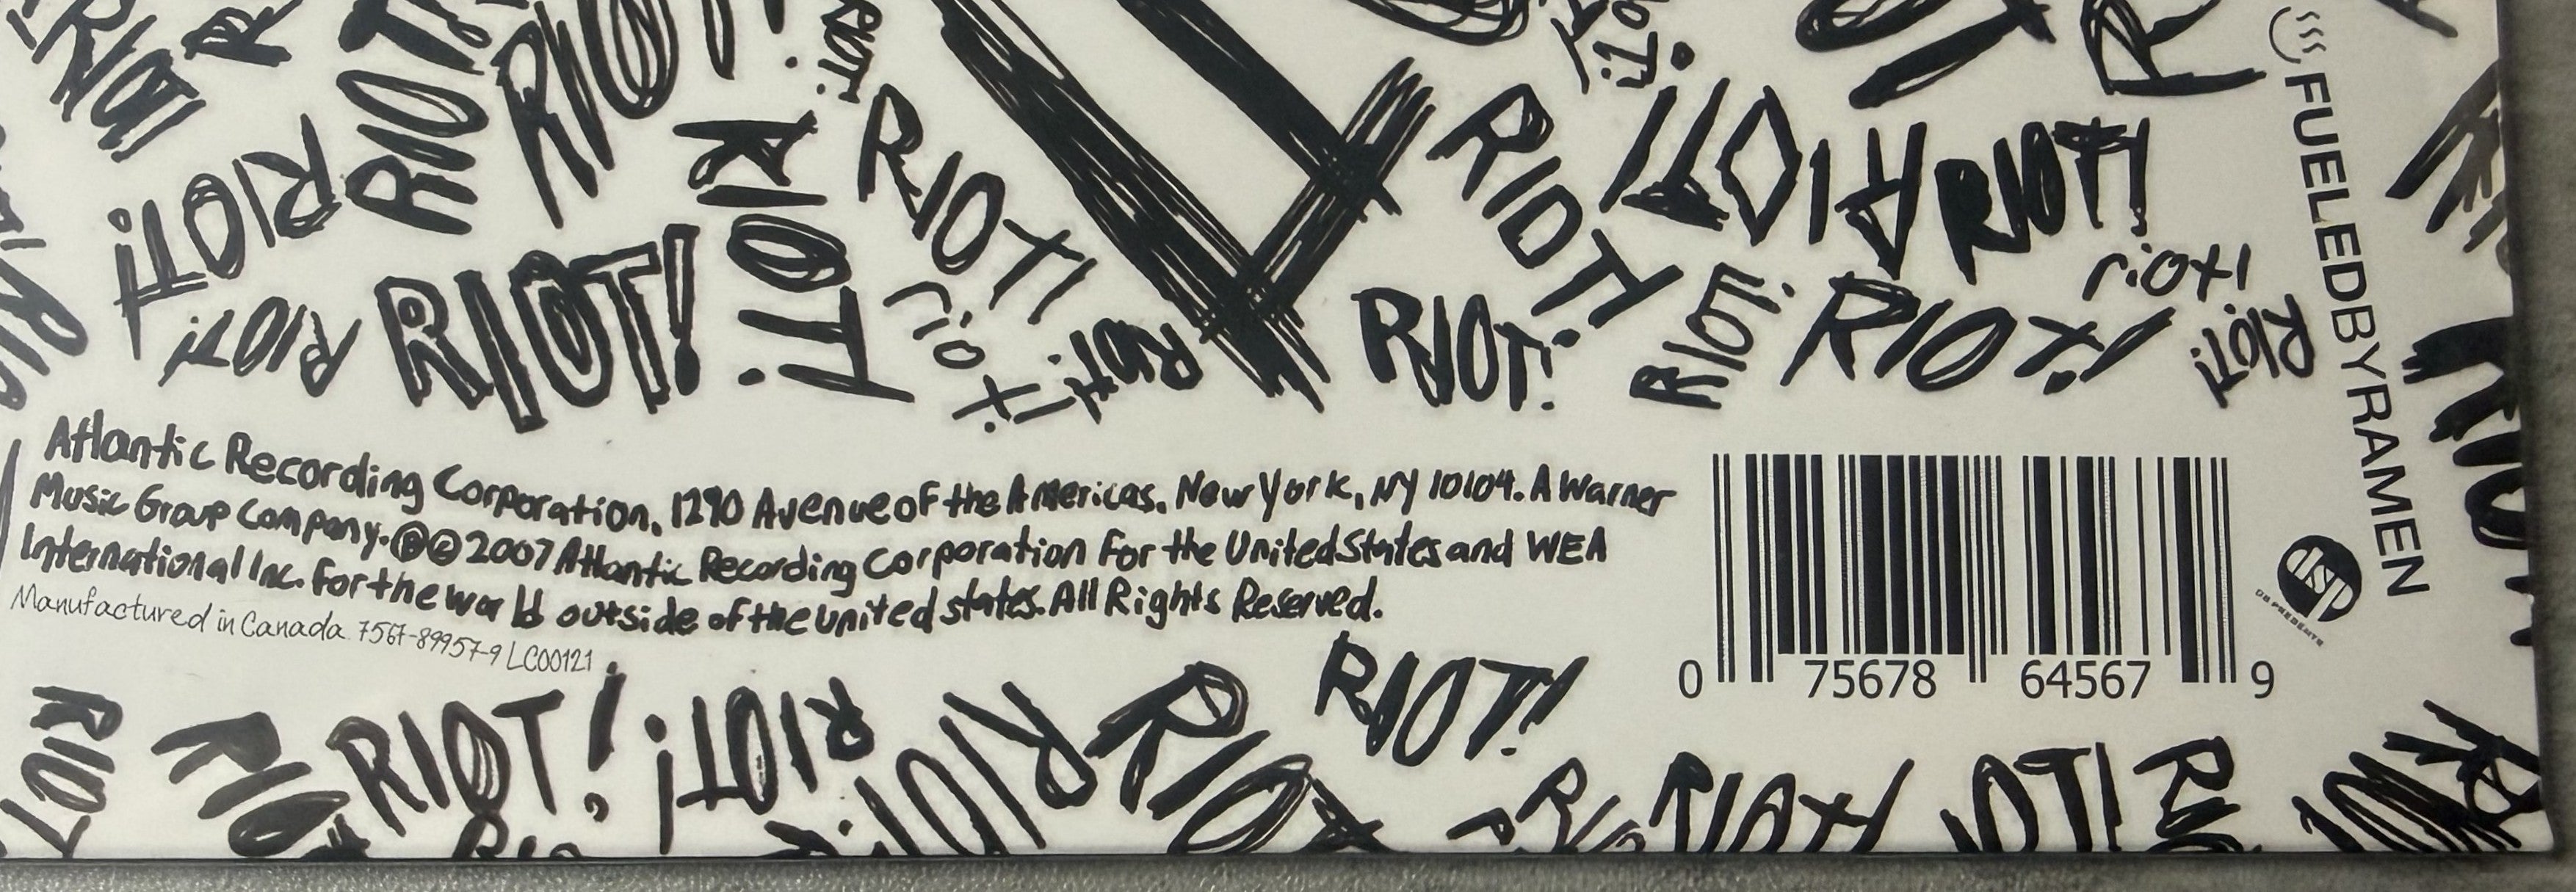 RIOT!
RIOT!
RIOT!
RIOT!
RIOT!
RIOT!
RIOT!
RIOT!
RIOT!
RIOT!
riot!
RIOT!
RIOT!
RIOT!
RIOT!
RIOT!
RIOT!
RIOT!
riot!
RIOT!
FUELEDBYRAMEN
Atlantic Recording Corporation, 1290 Avenue of the Americas, New York, NY 10104. A Warner
Music Group Company. ℗© 2007 Atlantic Recording Corporation for the United States and WEA
International Inc. for the world outside of the united states. All Rights Reserved.
Manufactured in Canada 7567-89957-9 LC00121
0 75678 64567 9
dsp
RIOT!
RIOT
RIO
RIOT!
RIOT!
RIOT
RIOT
RIOT!
OT!